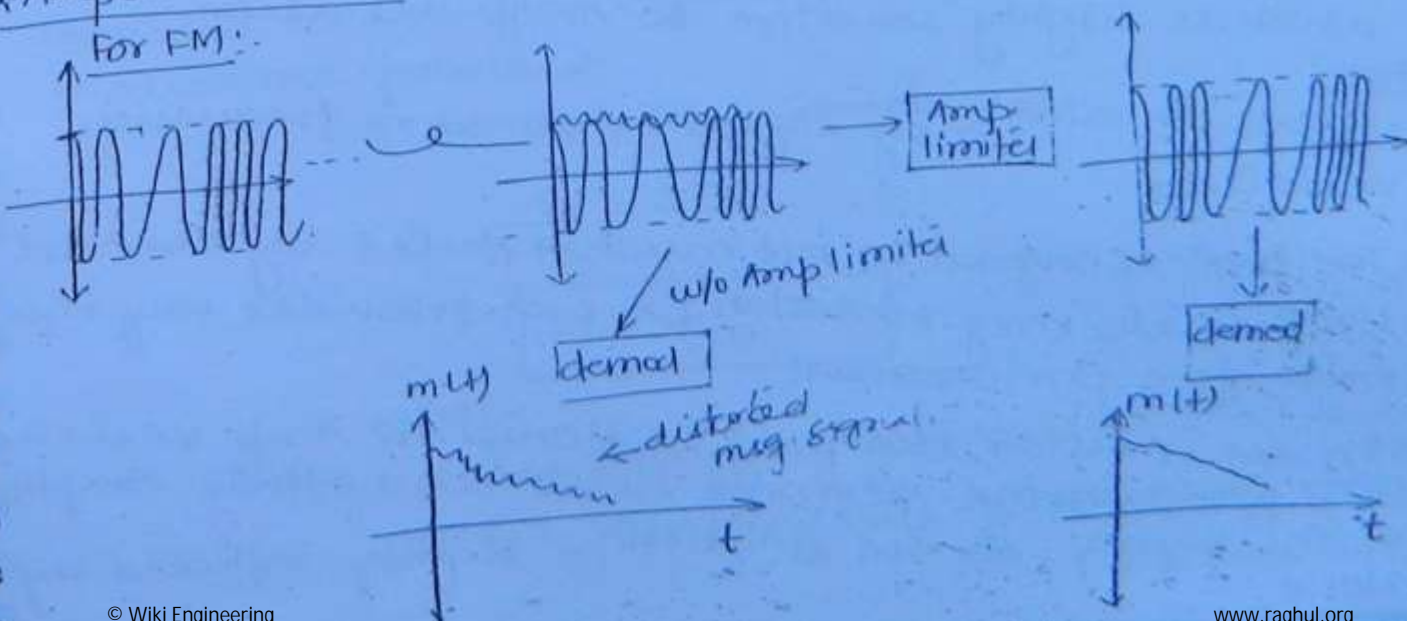 For FM:-
Amp
limiter
w/o Amp limiter
demod
demod
m(t)
← distorted
msg. signal.
t
m(t)
t
© Wiki Engineering
www.raghul.org